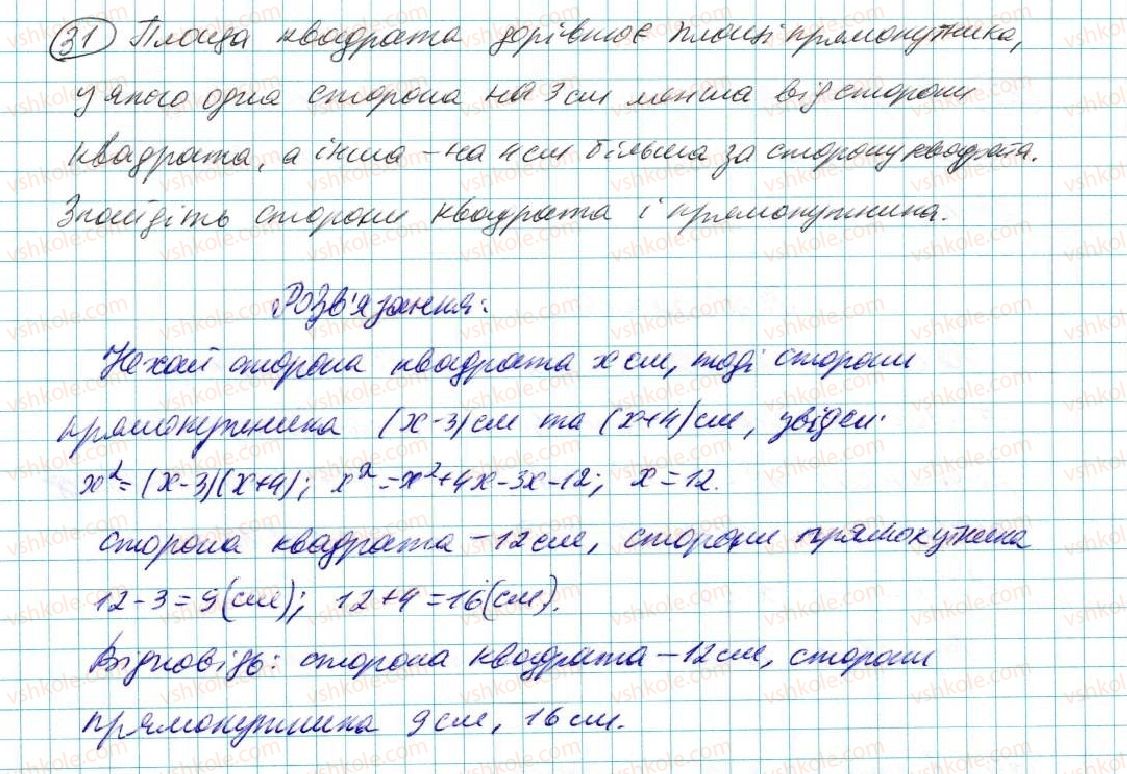 31 Площа квадрата дорівнює площі прямокутника,
у якого одна сторона на 3 см менша від сторони
квадрата, а інша – на 4 см більша за сторону квадрата.
Знайдіть сторони квадрата і прямокутника.
Розв'язання:
Нехай сторона квадрата x см, тоді сторони
прямокутника (x-3) см та (x+4) см, звідси:
x²=(x-3)(x+4); x²=x²+4x-3x-12; x=12.
Сторона квадрата – 12 см, сторони прямокутника
12-3=9(см); 12+4=16(см).
Відповідь: сторона квадрата – 12 см, сторони
прямокутника 9 см, 16 см.